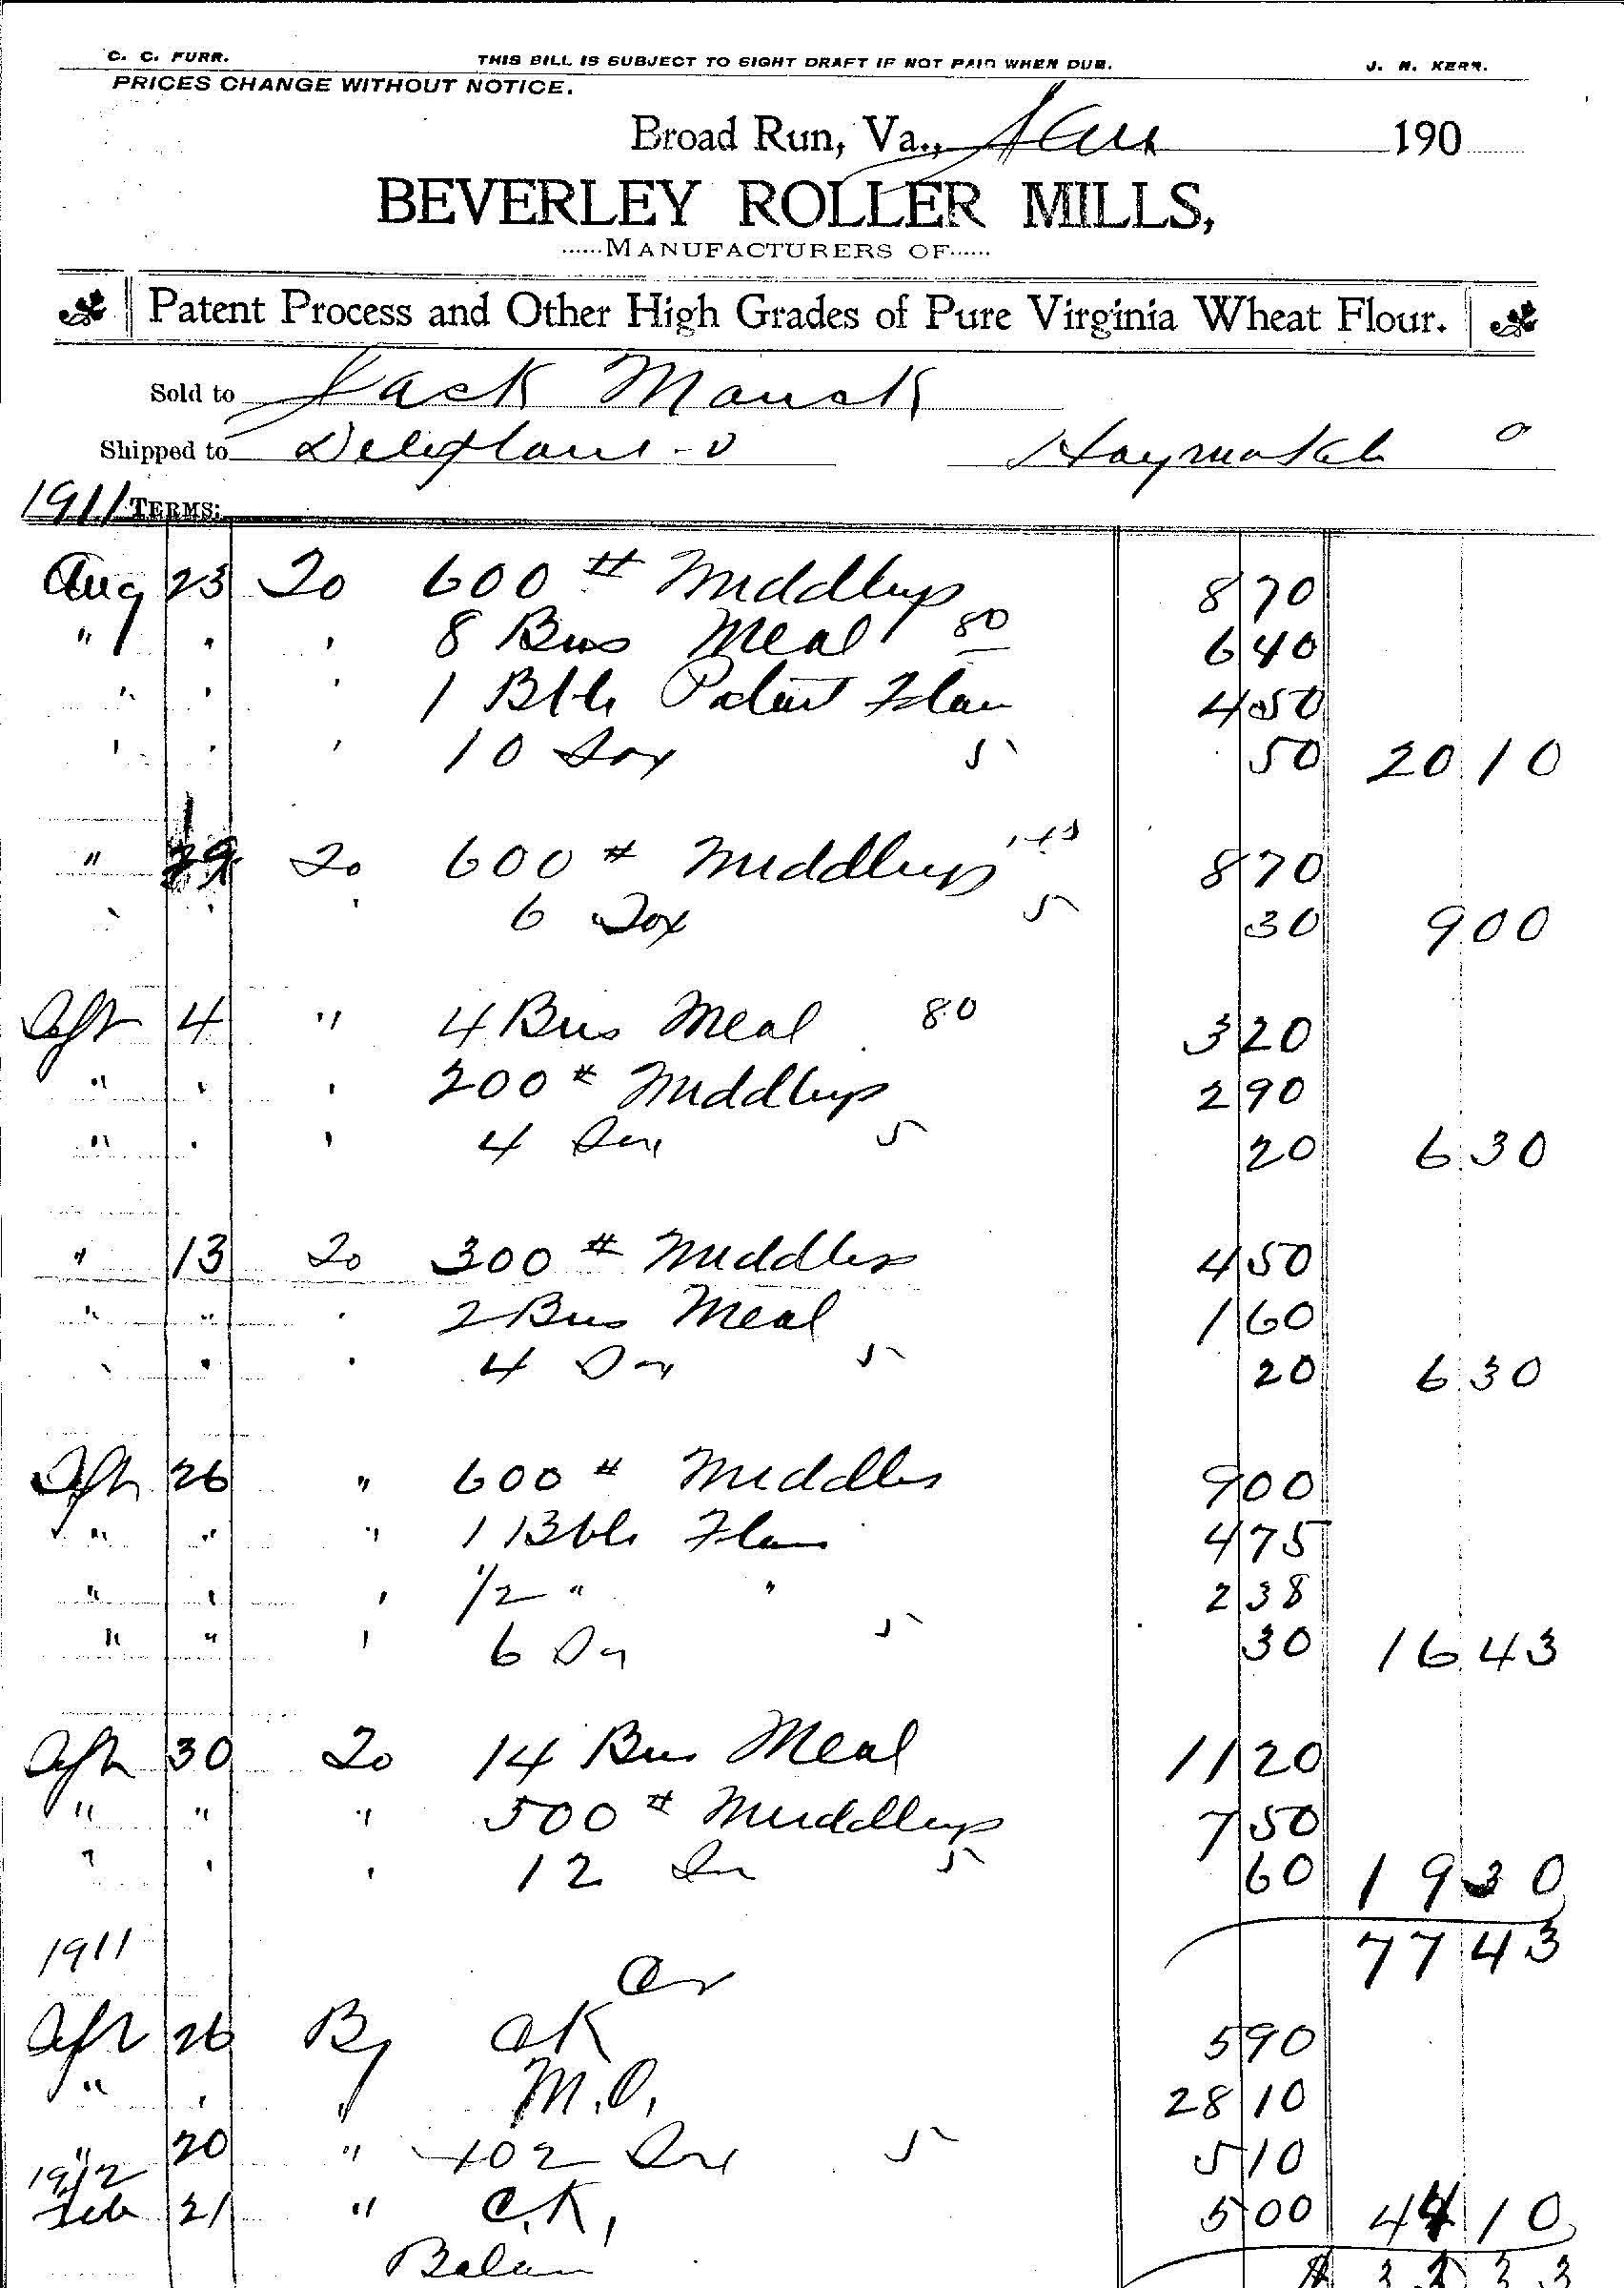 C. C. FURR. THIS BILL IS SUBJECT TO SIGHT DRAFT IF NOT PAID WHEN DUE. J. N. KERR.
PRICES CHANGE WITHOUT NOTICE.
Broad Run, Va., Jan 190
BEVERLEY ROLLER MILLS,
......MANUFACTURERS OF......
Patent Process and Other High Grades of Pure Virginia Wheat Flour.
Sold to Jack Mauck
Shipped to Haymarket
1911 TERMS:
Aug 23 To 600 # Middlings 8 70
" " " 8 Bus Meal 80 6 40
" " " 1 Bbl Patent Flour 4 50
" " " 10 Sax 5 50 20 10
" 29 To 600 # Middlings 8 70
" " " 6 Sax 5 30 9 00
Sept 4 " 4 Bus Meal 80 3 20
" " " 200 # Middlings 2 90
" " " 4 Sax 5 20 6 30
" 13 To 300 # Middlings 4 50
" " " 2 Bus Meal 1 60
" " " 4 Sax 5 20 6 30
Sept 26 " 600 # Middlings 9 00
" " " 1 Bbl Flour 4 75
" " " 1/2 " " 2 38
" " " 6 Sax 5 30 16 43
Sept 30 To 14 Bus Meal 11 20
" " " 500 # Middlings 7 50
" " " 12 Sax 5 60 19 30
77 43
1911 Cr
Sept 26 By CK 5 90
" " " M.O. 28 10
" 20 " 102 Sax 5 5 10
1912
Feb 21 " C.K. 5 00 44 10
Balance $ 33 33